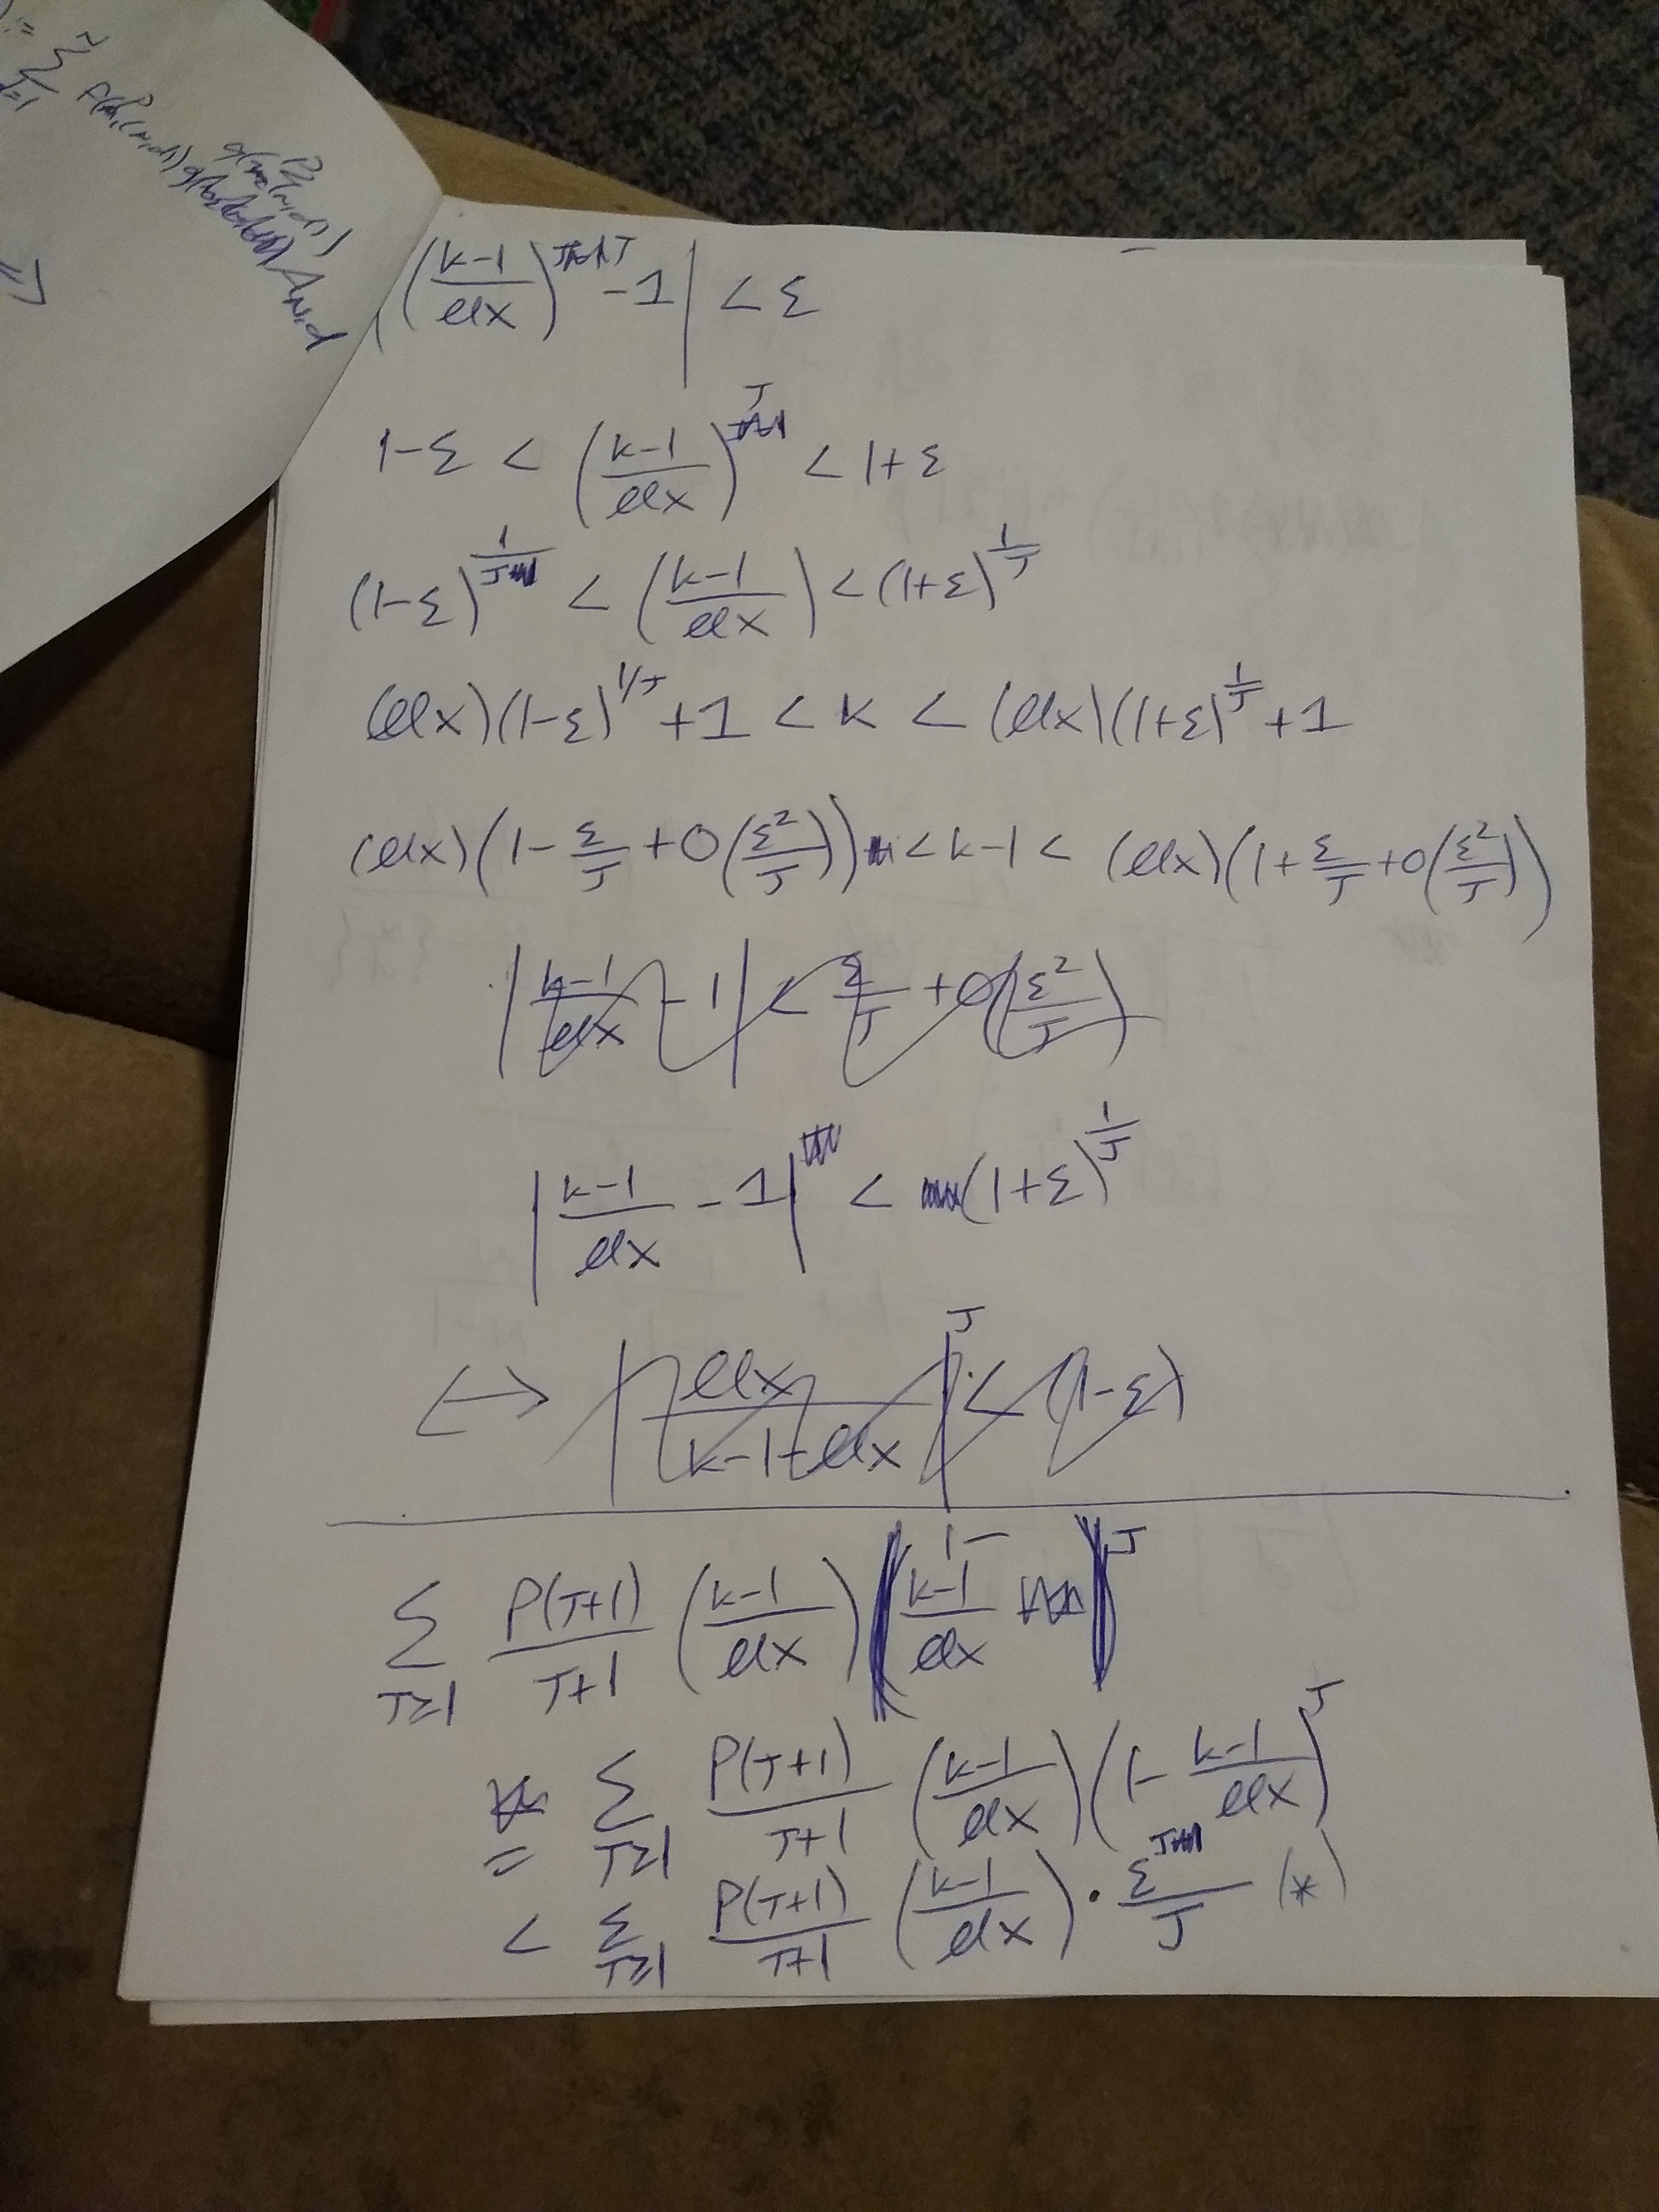 := Σ
J=1
A_{N,d}
=>
|(k-1/llx)^J - 1| < ε
1-ε < (k-1/llx)^J < 1+ε
(1-ε)^{1/J} < (k-1/llx) < (1+ε)^{1/J}
(llx)(1-ε)^{1/J} + 1 < k < (llx)(1+ε)^{1/J} + 1
(llx)(1 - ε/J + O(ε²/J)) < k-1 < (llx)(1 + ε/J + O(ε²/J))
|k-1/llx - 1| < ε/J + O(ε²/J)
|k-1/llx - 1| < (1+ε)^{1/J}
↔ |llx/k-1-llx|^J < (1-ε)
Σ_{J≥1} P(J+1)/J+1 (k-1/llx) (1 - k-1/llx)^J
= Σ_{J≥1} P(J+1)/J+1 (k-1/llx) (1 - k-1/llx)^J
< Σ_{J≥1} P(J+1)/J+1 (k-1/llx) · ε^J/J (*)